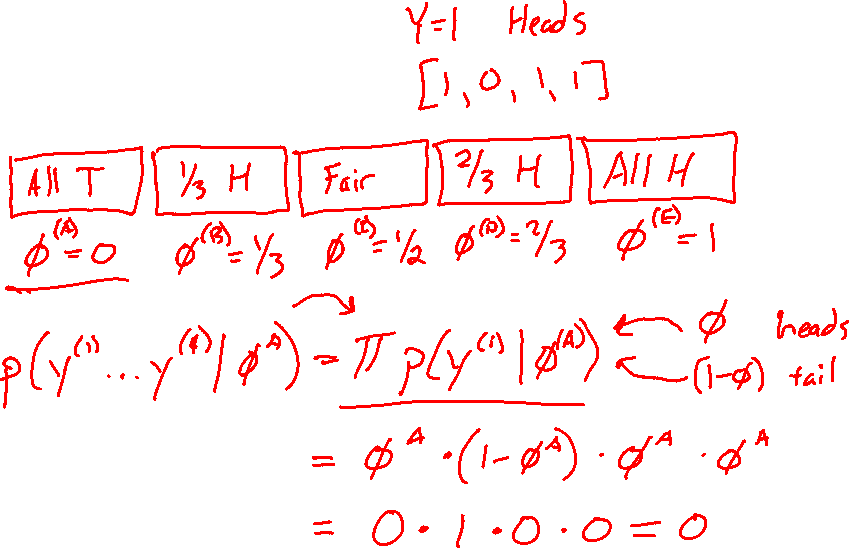 Y=1 Heads
[1, 0, 1, 1]
All T 1/3 H Fair 2/3 H All H
ϕ^(A)=0 ϕ^(B)=1/3 ϕ^(C)=1/2 ϕ^(D)=2/3 ϕ^(E)=1
p(y^(1)...y^(4)|ϕ^A) = Π p(y^(i)|ϕ^(A)) ← ϕ heads
← (1-ϕ) tail
= ϕ^A · (1-ϕ^A) · ϕ^A · ϕ^A
= 0 · 1 · 0 · 0 = 0